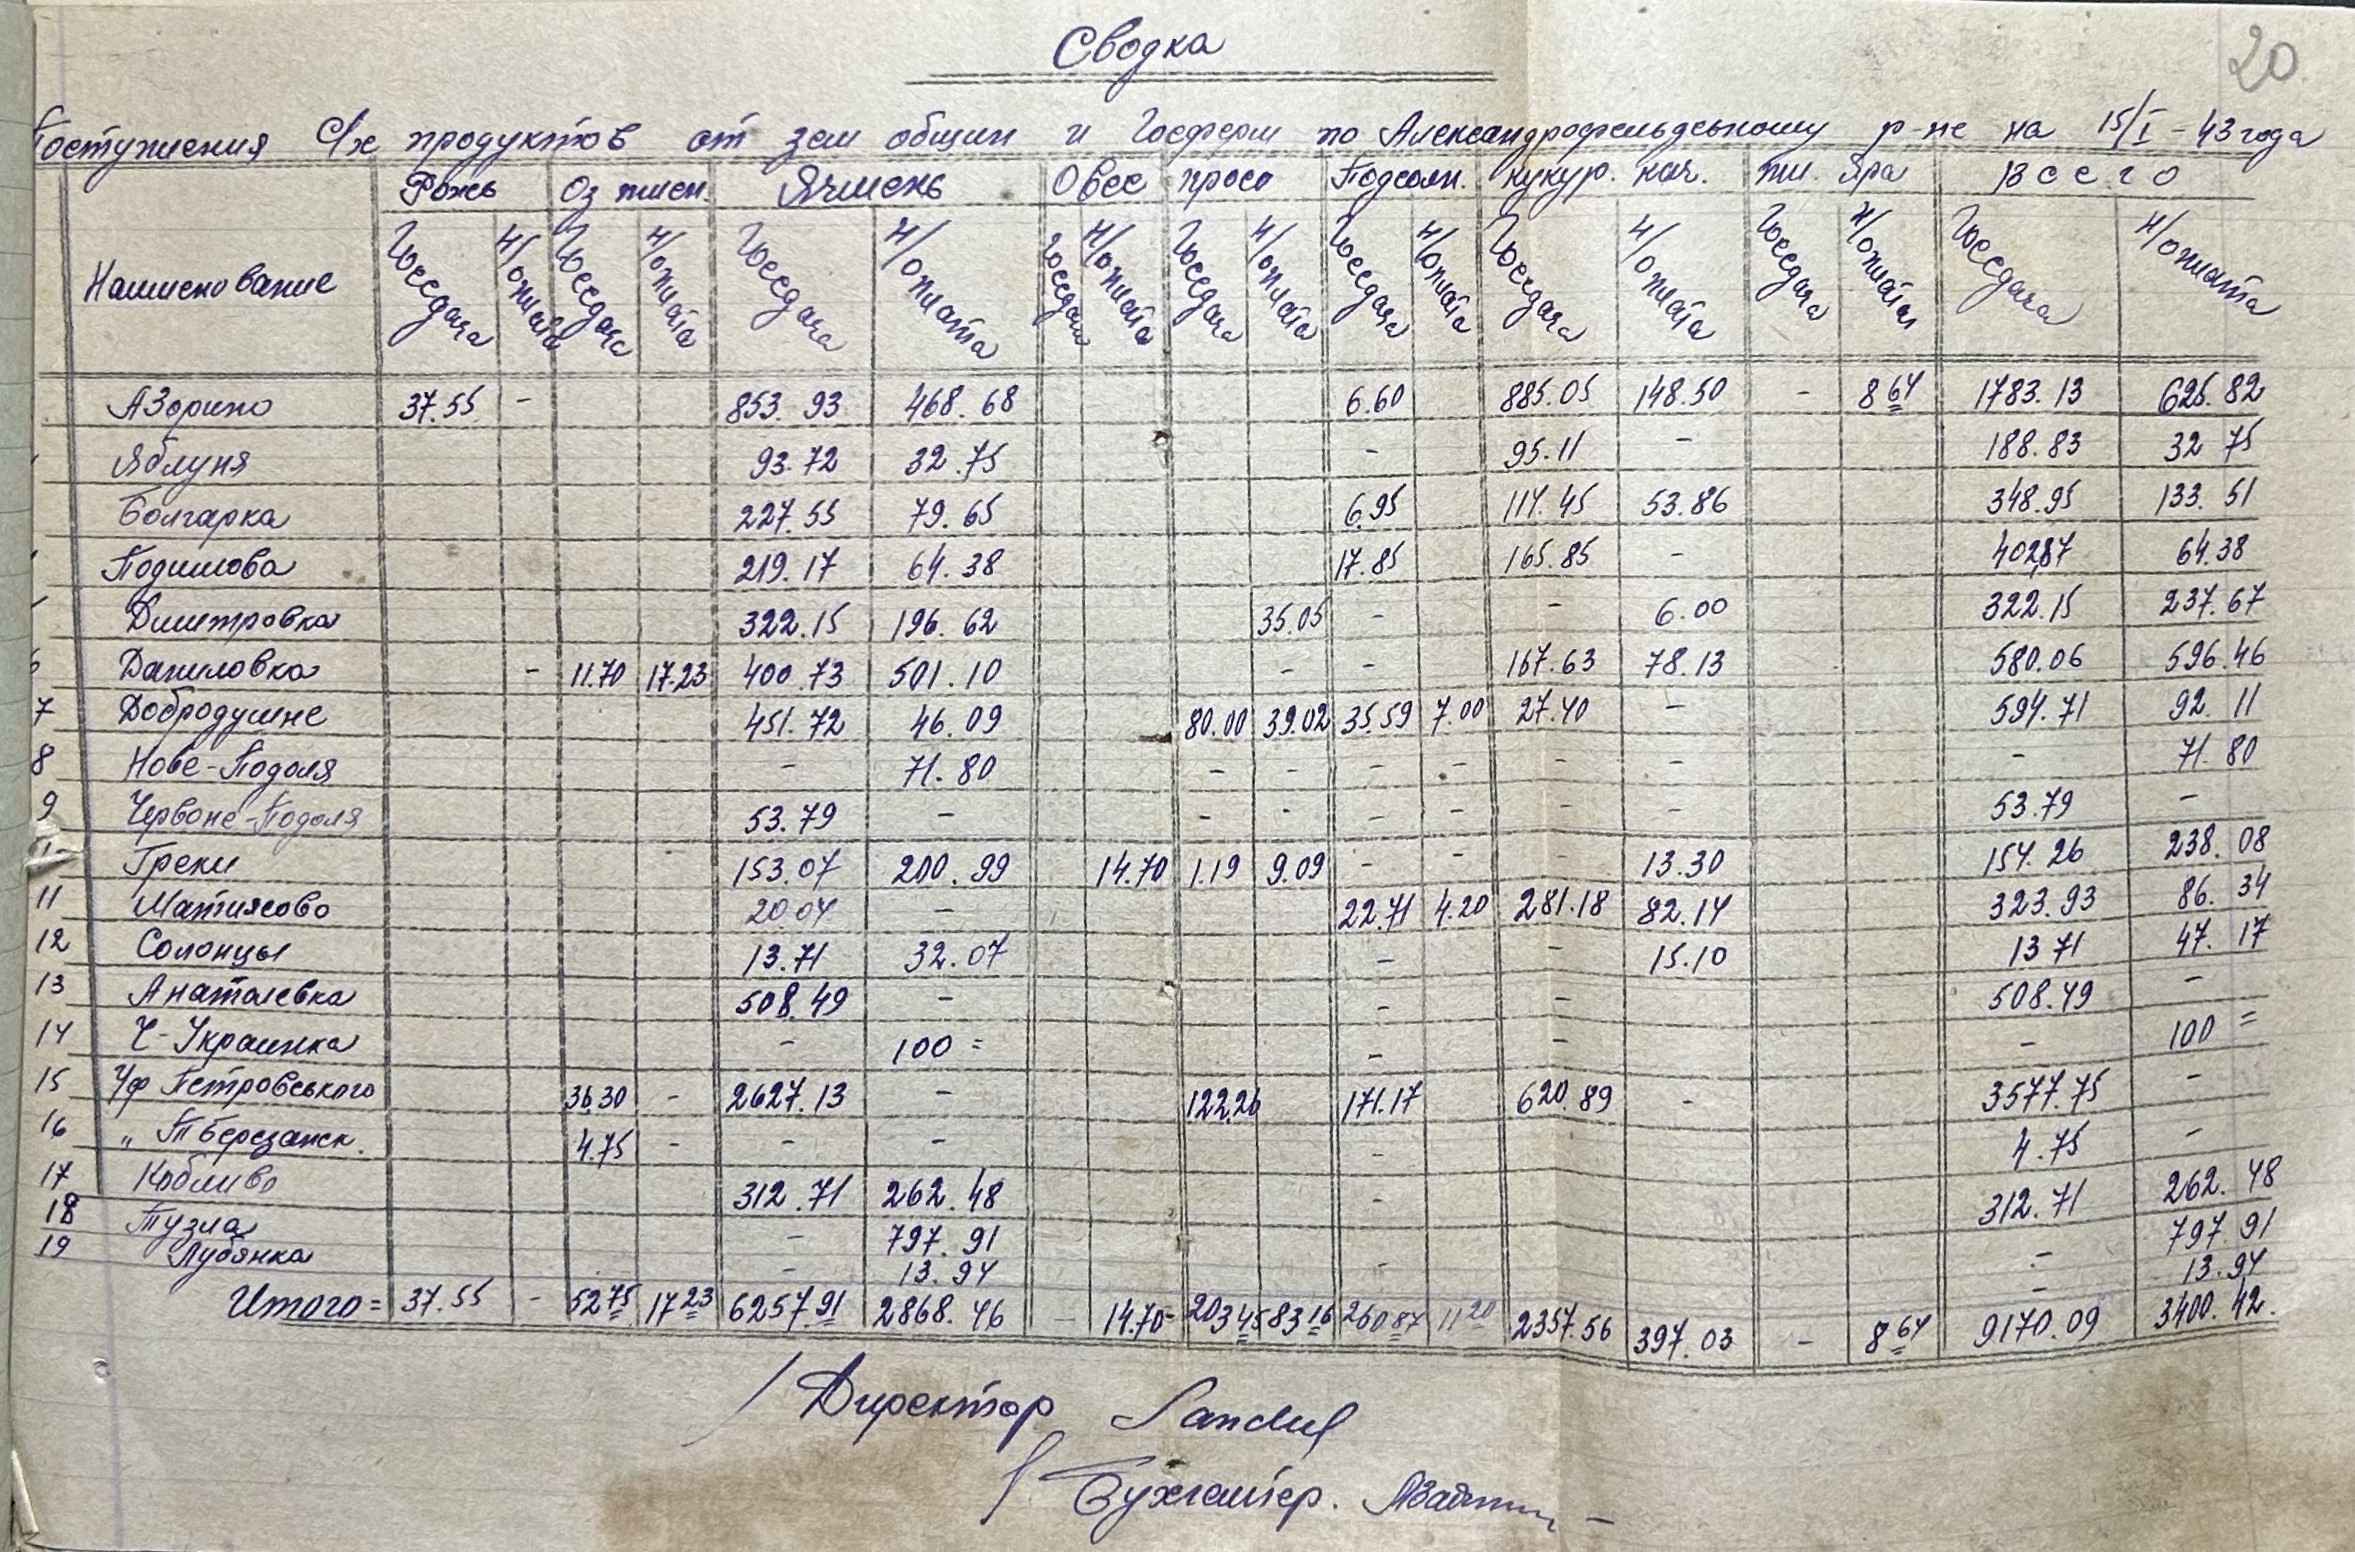 20
Сводка
Поступления С/х продуктов от зем общин и Госферм по Александрофельдському р-не на 15/I-43 года
Наименование Рожь Оз пшен. Ячмень Овес просо Подсолн. кукур. кач. пш. Яра Всего
Госсдача Н/оплата Госсдача Н/оплата Госсдача Н/оплата Госсдача Н/оплата Госсдача Н/оплата Госсдача Н/оплата Госсдача Н/оплата Госсдача Н/оплата Госсдача Н/оплата
37.55 - 853.93 468.68 6.60 885.05 148.50 - 8 64 1783.13 625.82
Яблуня 93.72 32.75 - 95.11 - 188.83 32 75
Болгарка 227.55 79.65 6.95 114.45 53.86 348.95 133.51
219.17 64.38 17.85 165.85 - 402,87 64.38
Дмитровка 322.15 196.62 35.05 - - 6.00 322.15 237.67
6 Даниловка - 11.70 17.23 400.73 501.10 - - 167.63 78.13 580.06 596.46
7 Добродушне 451.72 46.09 80.00 39.02 35.59 7.00 27.40 - 594.71 92.11
8 Нове-Подоля - 71.80 - - - - - - - 71.80
9 Червоне-Подоля 53.79 - - - - - - - 53.79 -
Греки 153.07 200.99 14.70 1.19 9.09 - - - 13.30 154.26 238.08
11 Матиясово 20.04 - 22.71 4.20 281.18 82.14 323.93 86.34
12 Солонцы 13.71 32.07 - - 15.10 13 71 47.17
13 Анатолевка 508.49 - - - 508.49 -
14 Ч-Украинка - 100 = - - - 100 =
15 Ч/ф Петровського 36.30 - 2627.13 - 122.26 171.17 620.89 - 3577.75 -
16 " Т Березанск. 4.75 - - - - 4.75 -
17 Кобливо 312.71 262.48 - 312.71 262.48
18 Тузла - 797.91 - 797.91
19 Лубянка - 13.94 - - 13.94
Итого = 37.55 - 52 75 17 23 6257.91 2868.46 - 14.70- 203 45 83 16 260 87 11 20 2357.56 397.03 - 8 64 9170.09 3400.42.
Директор Sandul
Бухгалтер.